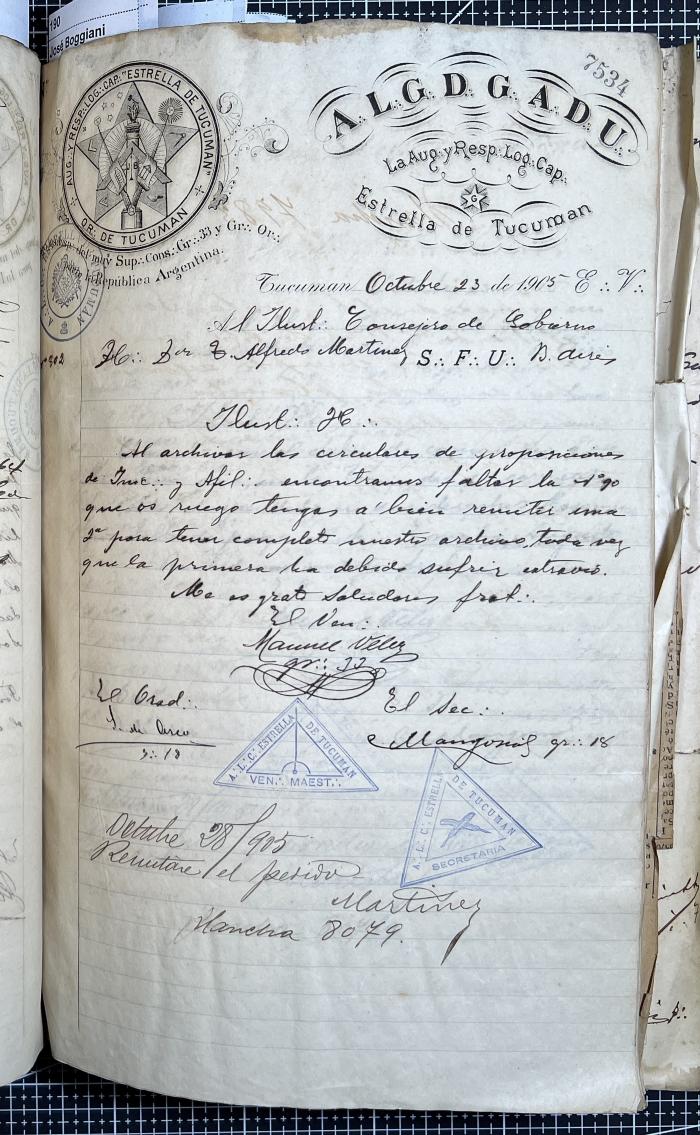 190
José Boggiani
7534
AUG.·. Y RESP.·. LOG.·. CAP.·. "ESTRELLA DE TUCUMAN"
OR.·. DE TUCUMAN
del muy Sup.·. Cons.·. Gr.·. 33 y Gr.·. Or.·.
la República Argentina.
A.·. L.·. G.·. D.·. G.·. A.·. D.·. U.·.
La Aug.·. y Resp.·. Log.·. Cap.·.
G
Estrella de Tucuman
Tucuman Octubre 23 de 1905 E.·. V.·.
Al Ilust.·. Consejero de Gobierno
H.·. Dor Alfredo Martinez S.·. F.·. U.·. B. Aires
Ilust.·. H.·.
Al archivar las circulares de proposiciones
de Inic.·. y Afil.·. encontramos faltar la nº 90
que os ruego tengas a bien remitir una
2ª para tener completo nuestro archivo, toda vez
que la primera ha debido sufrir estravio.
Me es grato saludaros frat.·.
El Ven.·.
Manuel Velez
gr.·. 33
El Orad.·.
El Sec.·.
gr.·. 18
g.·. 18
A.·. L.·. C.·. ESTRELLA DE TUCUMAN
VEN.·. MAEST.·.
A.·. L.·. C.·. ESTRELLA DE TUCUMAN
SECRETARIA
Octubre 28/905
Remitase el pedido
Martinez
Plancha 8079.